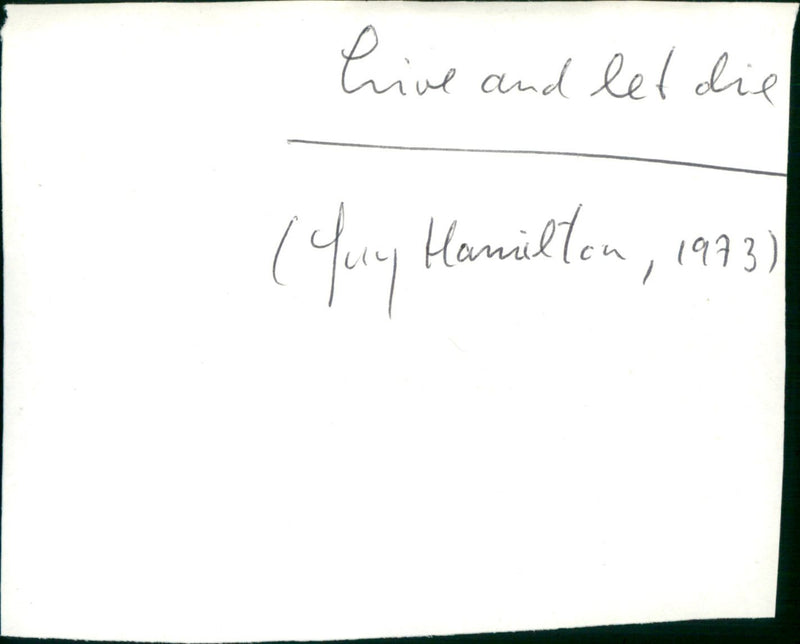 Live and let die
(Guy Hamilton, 1973)